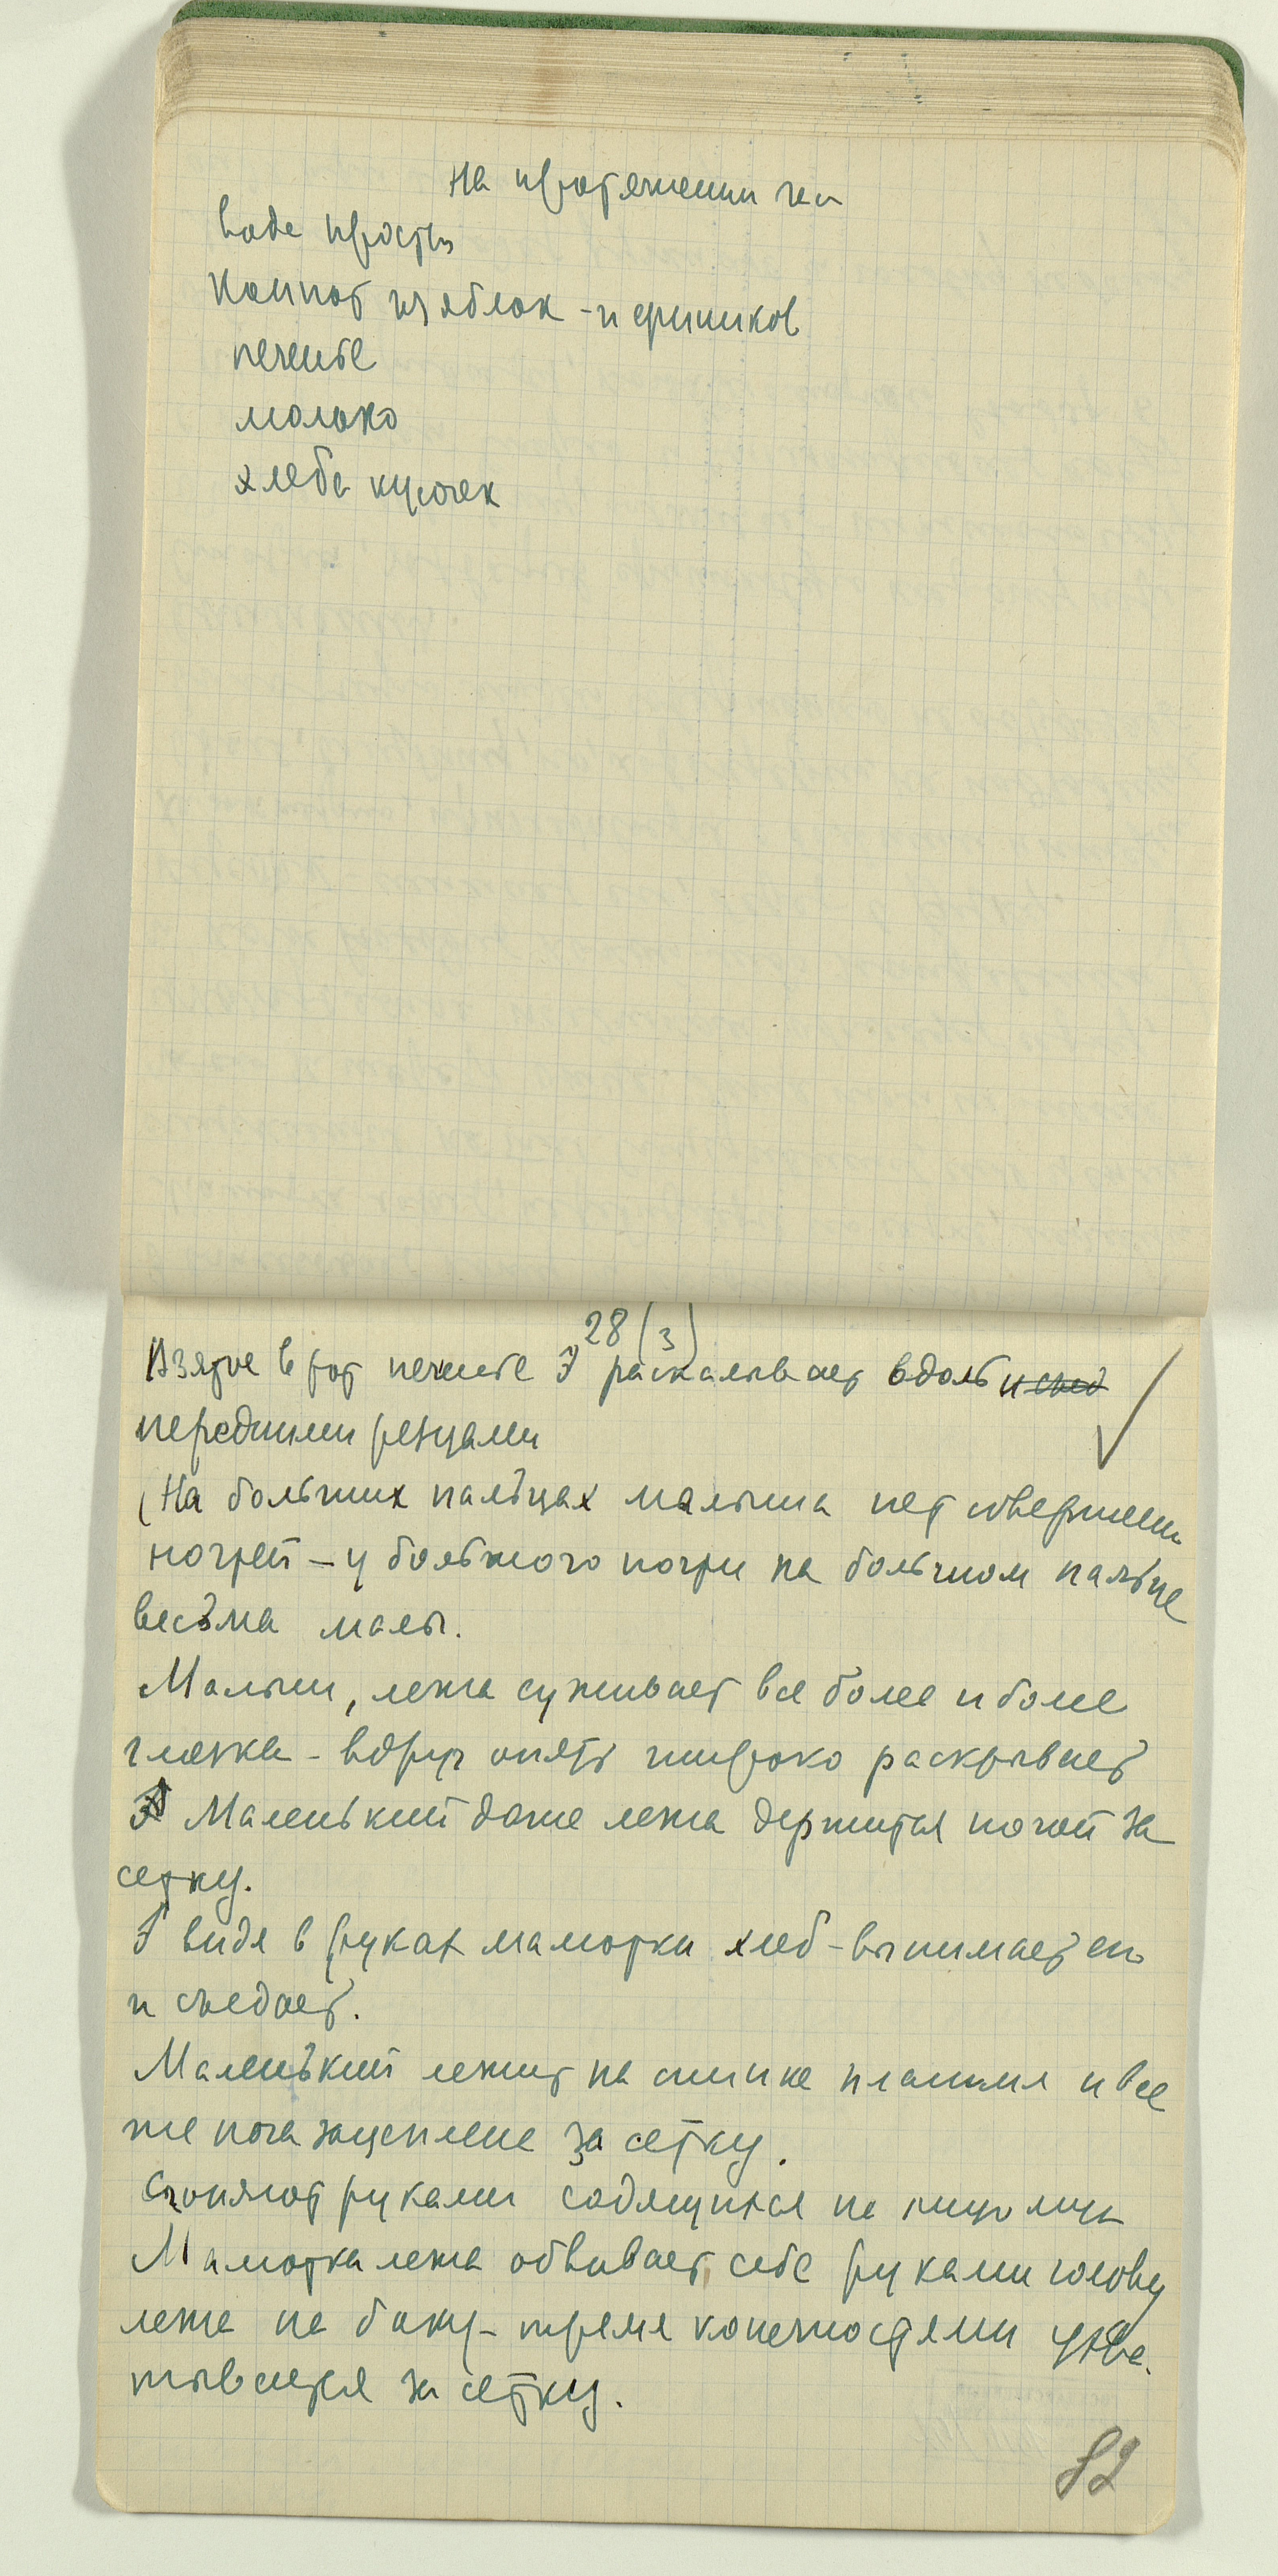 На протяжении часа
вода прост.
Компот из яблок - и фиников
печенье
молоко
хлеба кусочек
28 (3)
Взятое в рот печенье Э раскалывает вдоль и съед
передними резцами
(На больших пальцах малыша нет совершенно
ногтей - у большого ногти на большом пальце
весьма малы.
Малыш, лежа суживает все более и более
глазки - вдруг опять широко раскрывает
Э Маленький даже лежа держится ногой за
сетку.
Э видя в руках маморки хлеб - вынимает его
и съедает.
Маленький лежит на спинке плашмя и все
же нога зацеплена за сетку.
Сгоняют руками садящихся на пищу мух
Маморка лежа обвивает себе руками голову
лежа на боку - тремя конечностями ухва-
тывается за сетку.
82